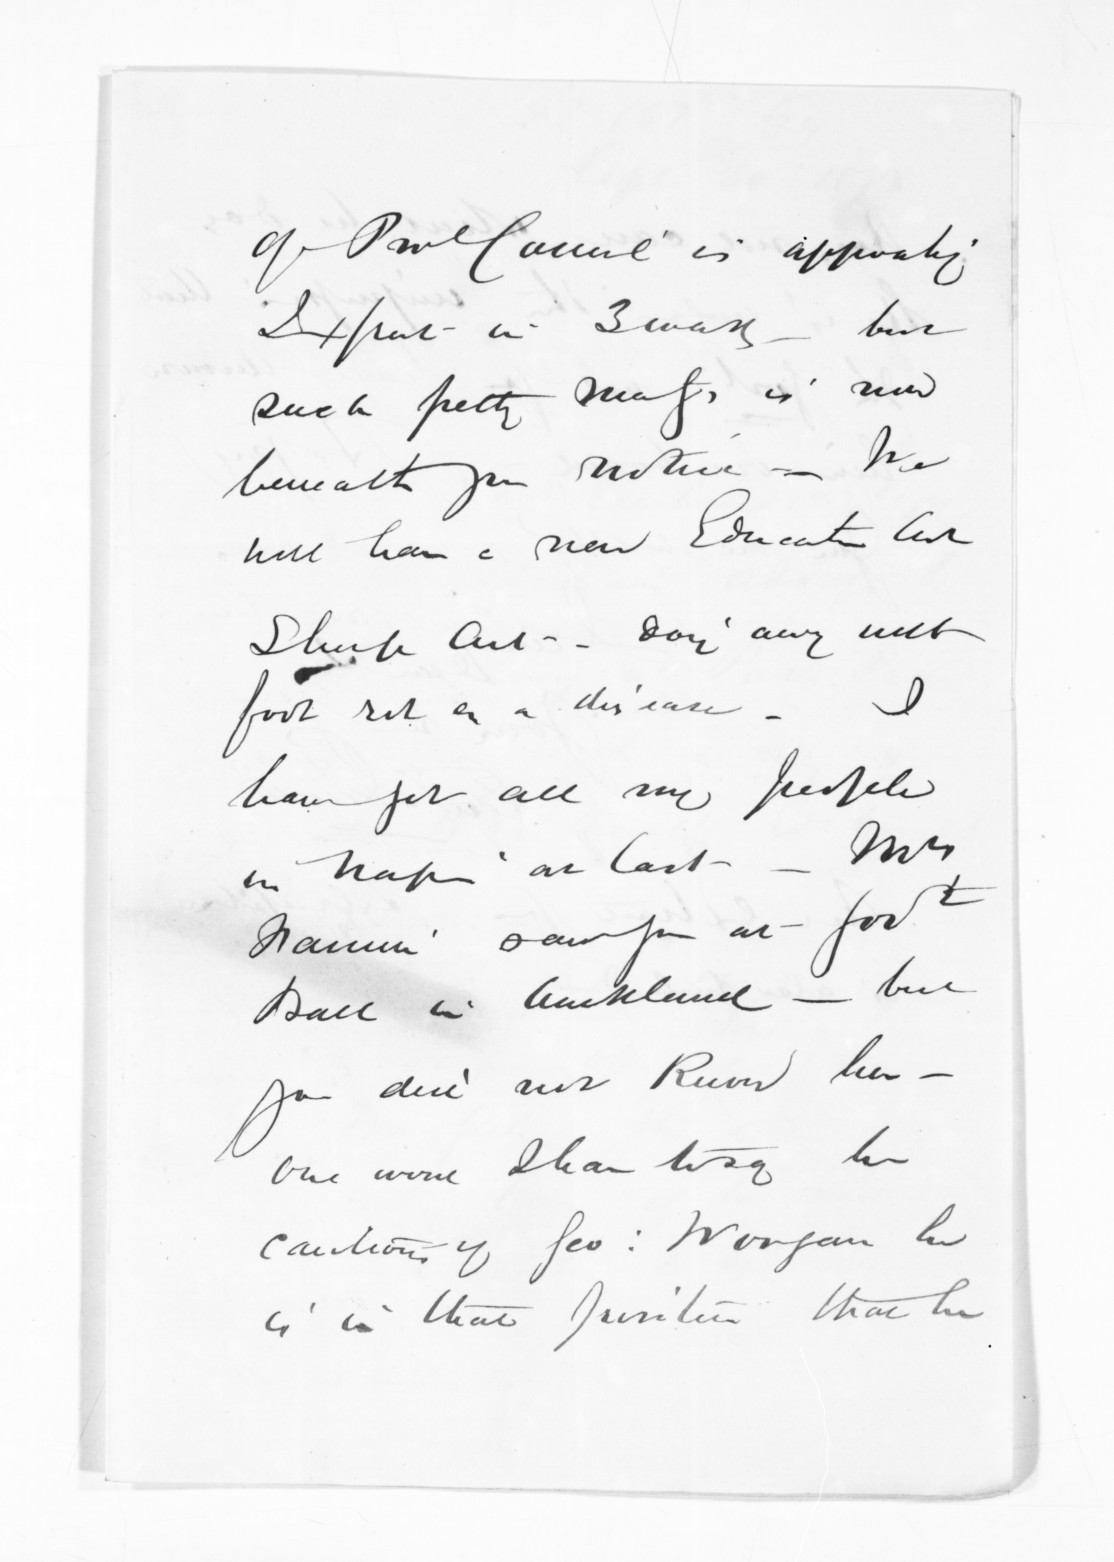 of Provl Council is approachg
I expect in 3 weeks — but
such petty is now
beneath your notice — We
will have a new Education Act
Sheep Act - - doing away with
foot rot as a disease - I
have got all my people
in Napier at last — Mrs
saw you at Govt
Ball in Auckland — but
you did not know her —
one word I have to say be
cautious of Geo: Worgan he
is in that position that he